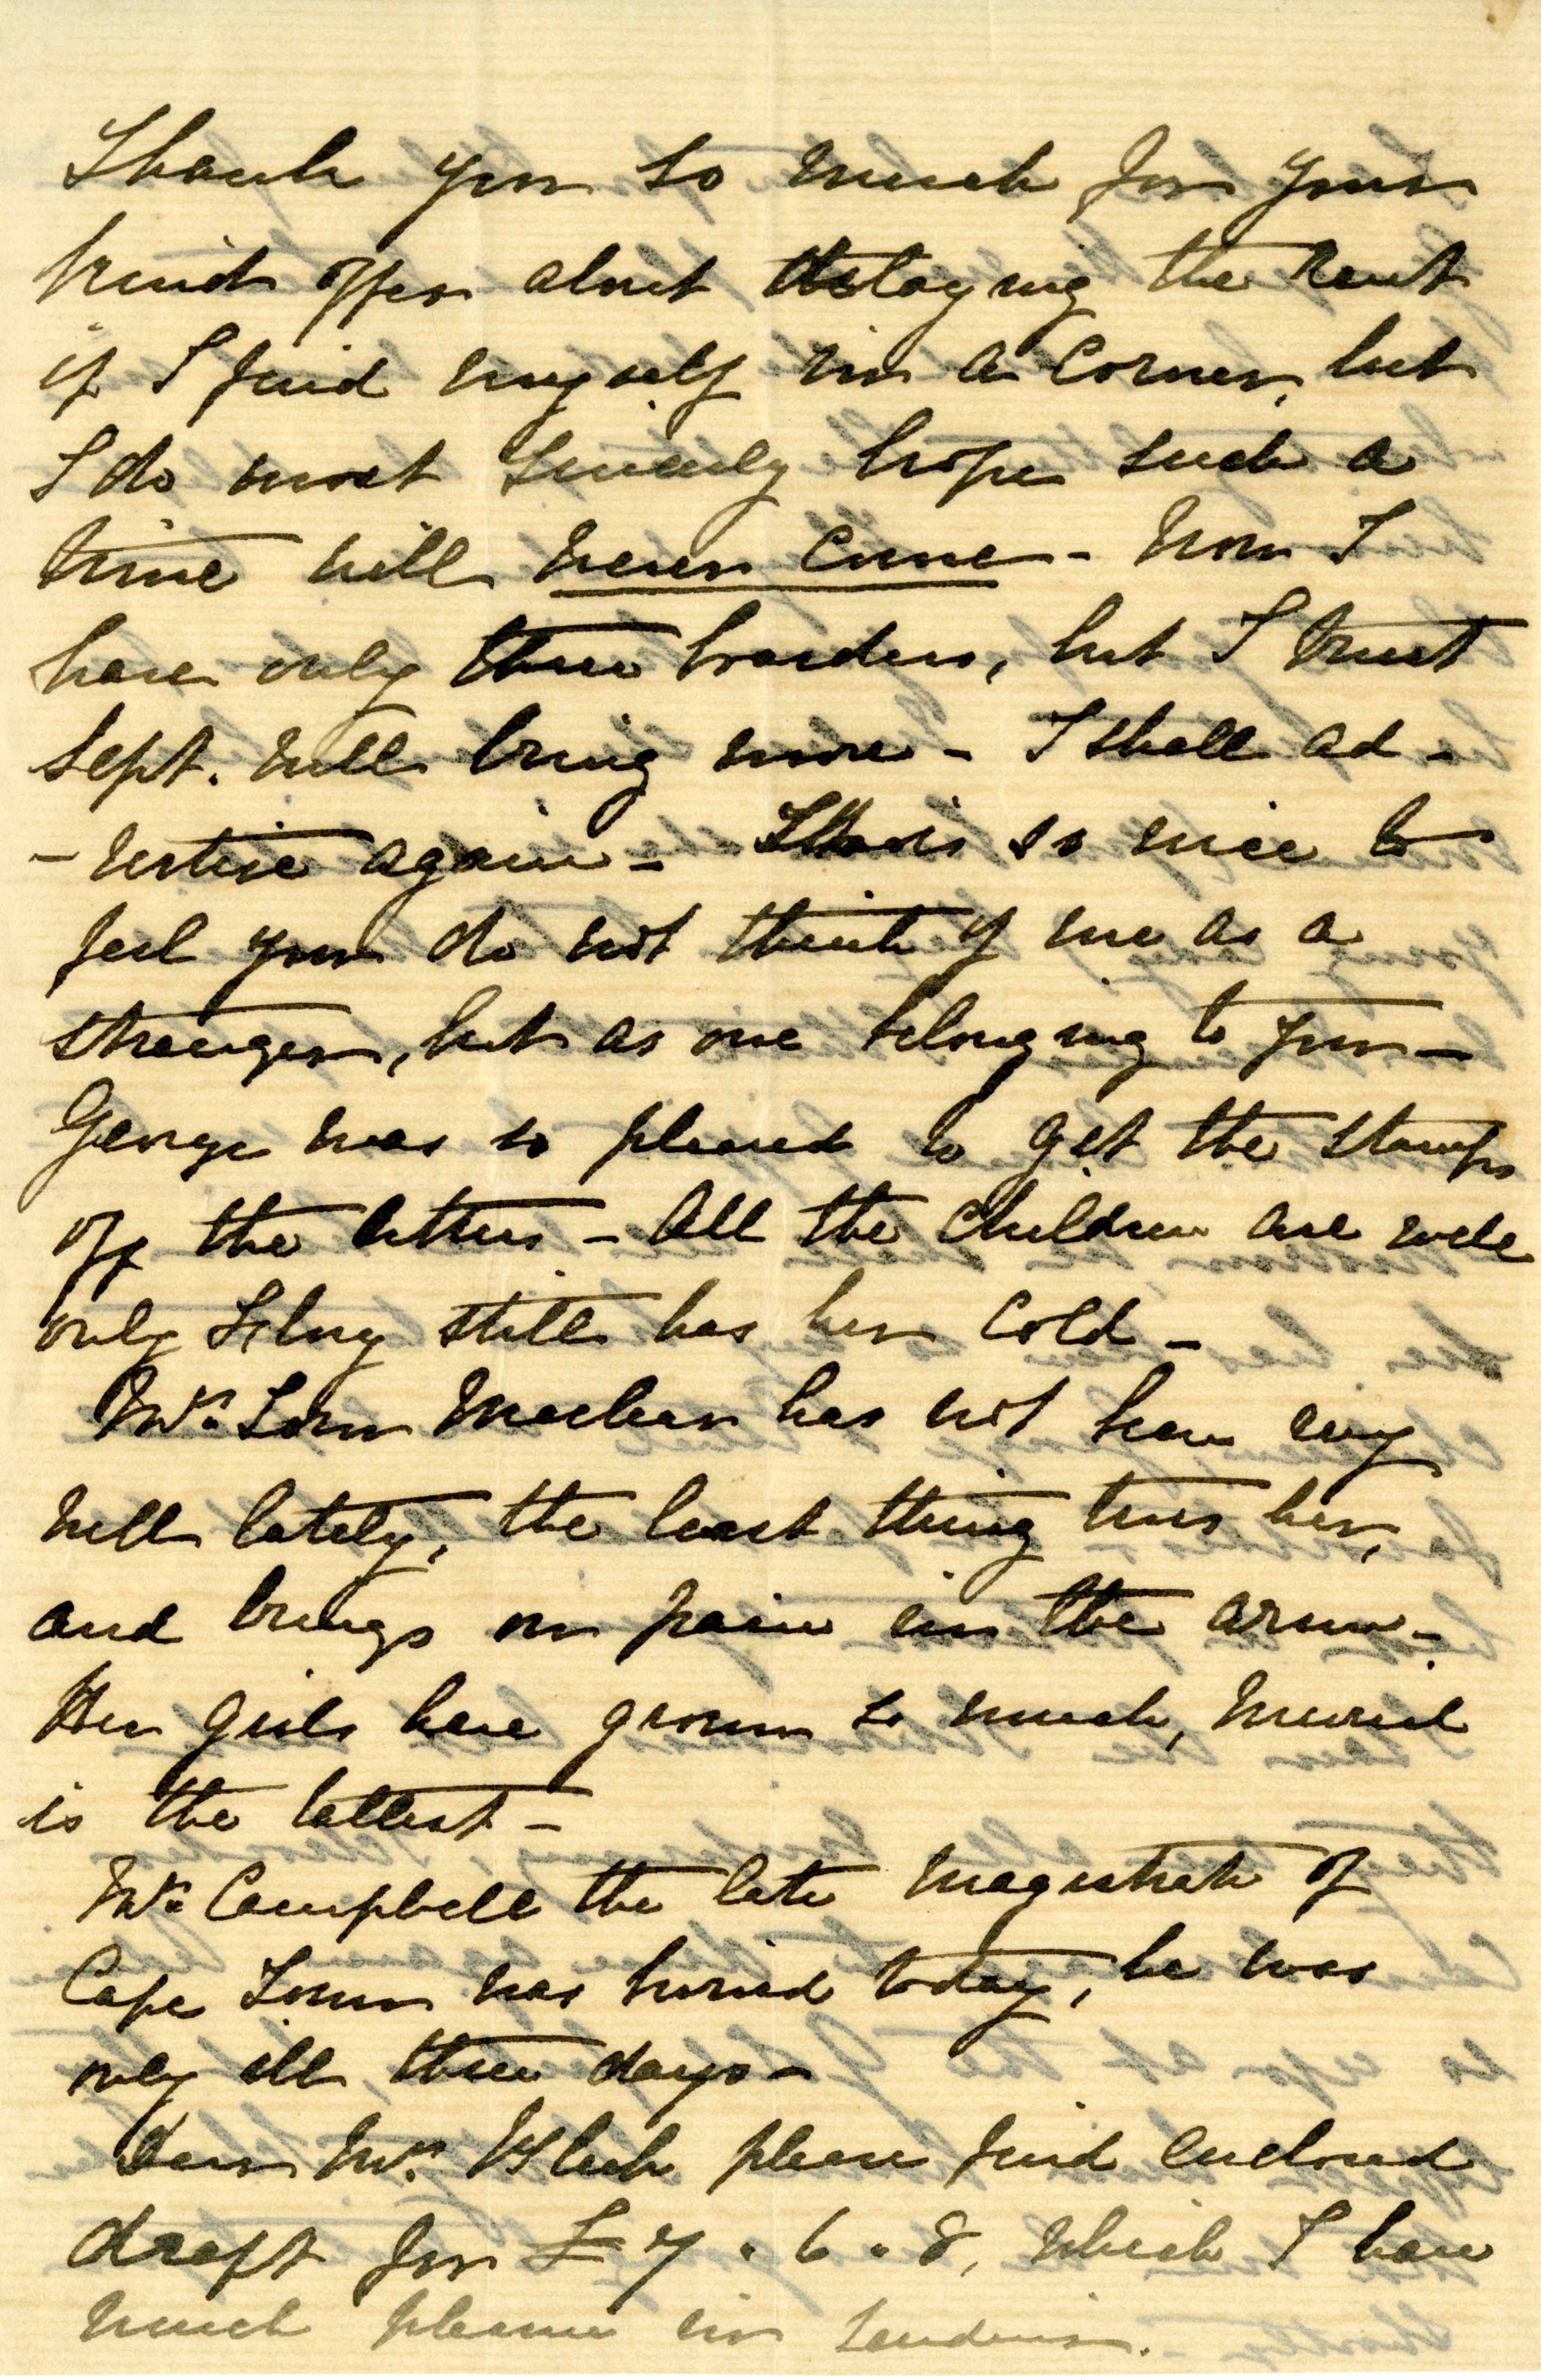 Thank you so much for your
kind offer about delaying the rent
if I find myself in a corner, but
I do most sincerely hope such a
time will never come - now I
have only three boarders, but I trust
Sept. will bring more - I shall ad -
- vertise again - It is so nice to
feel you do not think of me as a
stranger, but as one belonging to you -
George was so pleased to get the stamps
off the letters - All the children are well
only still has her cold -
Mrs Tom Maclear has not been very
well lately, the least thing tires her,
and brings on pain in the arm -
Her girls have grown so much, Muriel
is the tallest -
Mr Campbell the late magistrate of
Cape Town was buried today, he was
only ill three days -
Dear Mr Bleek please find enclosed
draft for £7 . 6 . 8, which I have
much pleasure in sending.